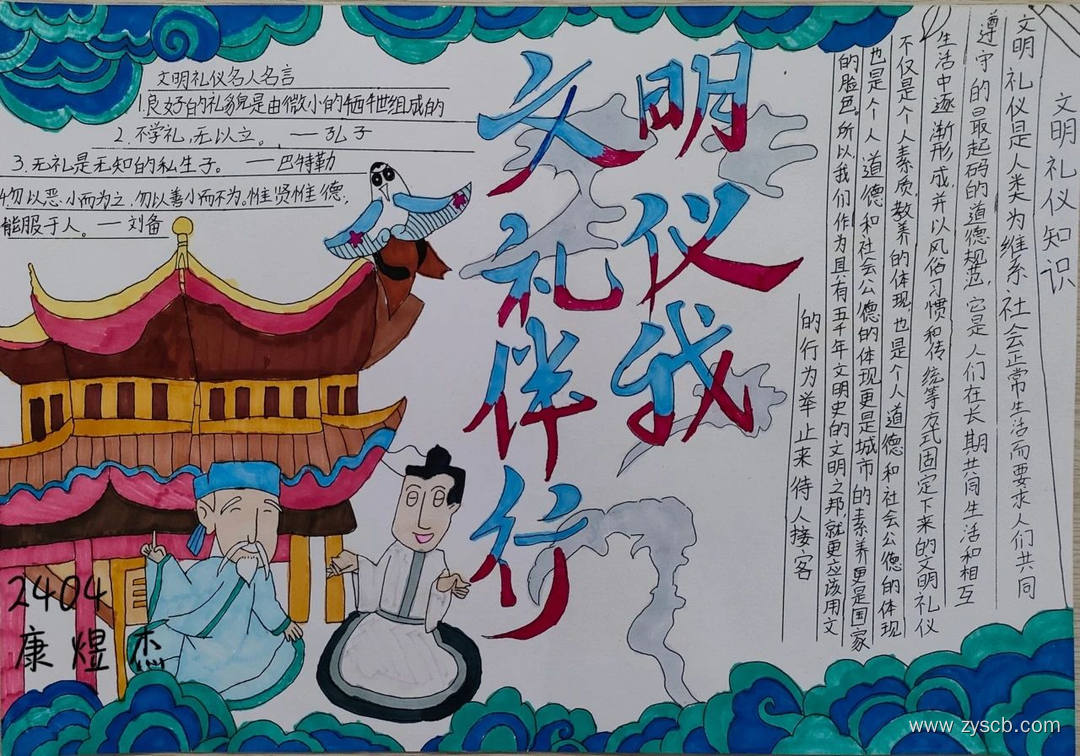 文明礼仪名人名言
1.良好的礼貌是由微小的牺牲组成的
2.不学礼,无以立。——孔子
3.无礼是无知的私生子。——巴特勒
勿以恶小而为之,勿以善小而不为。惟贤惟德,
能服于人。——刘备
文明
礼仪
伴我
行
文明礼仪知识
文明礼仪是人类为维系社会正常生活而要求人们共同
遵守的最起码的道德规范,它是人们在长期共同生活和相互
生活中逐渐形成,并以风俗习惯和传统等方式固定下来的文明礼仪
不仅是个人素质,教养的体现,也是个人道德和社会公德的体现
也是个人道德和社会公德的体现更是城市的素养更是国家
的脸色。所以我们作为具有五千年文明史的文明之邦就更应该用文
的行为举止来待人接客
2404
康煜杰
www.zyscb.com